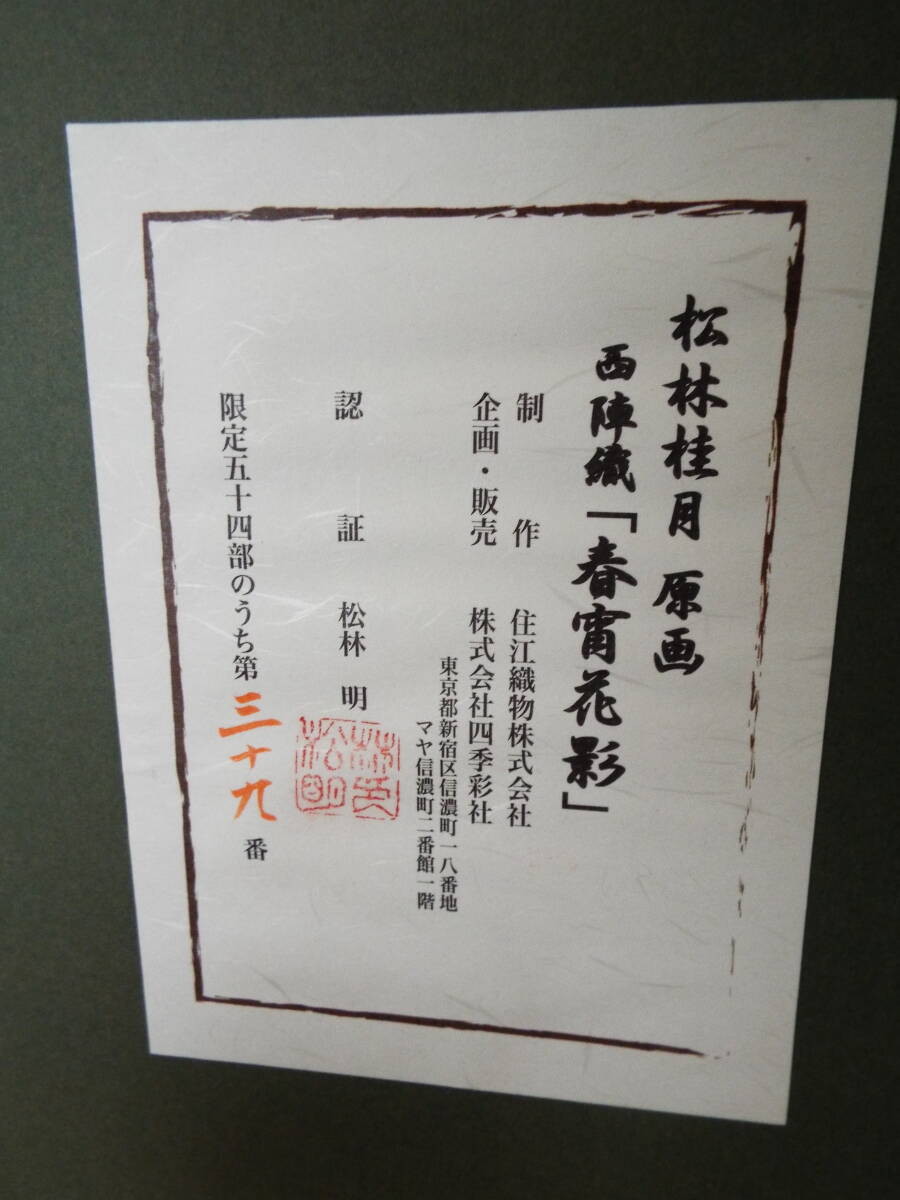 松林桂月 原画
西陣織「春宵花影」
制作 住江織物株式会社
企画・販売 株式会社四季彩社
東京都新宿区信濃町一八番地
マヤ信濃町二番館一階
認証 松林 明
限定五十四部のうち第三十九番